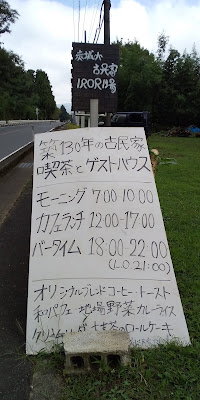 古民家
IRORI場
築130年の古民家
喫茶とゲストハウス
モーニング 7:00 10:00
カフェランチ 12:00-17:00
バータイム 18:00-22:00
(L.O.21:00)
オリジナルブレンドコーヒー・トースト
和パフェ 地場野菜カレーライス
のロールケーキ